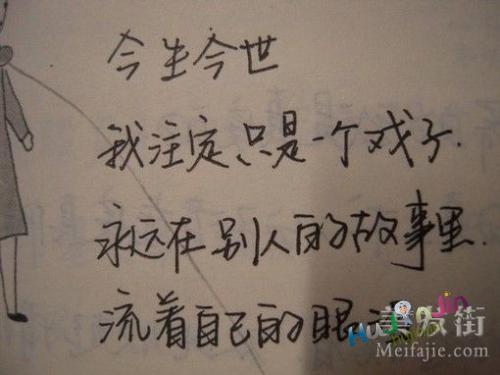 今生今世
我注定、只是一个戏子.
永远在别人的故事里.
流着自己的眼
美发街
Meifajie.com